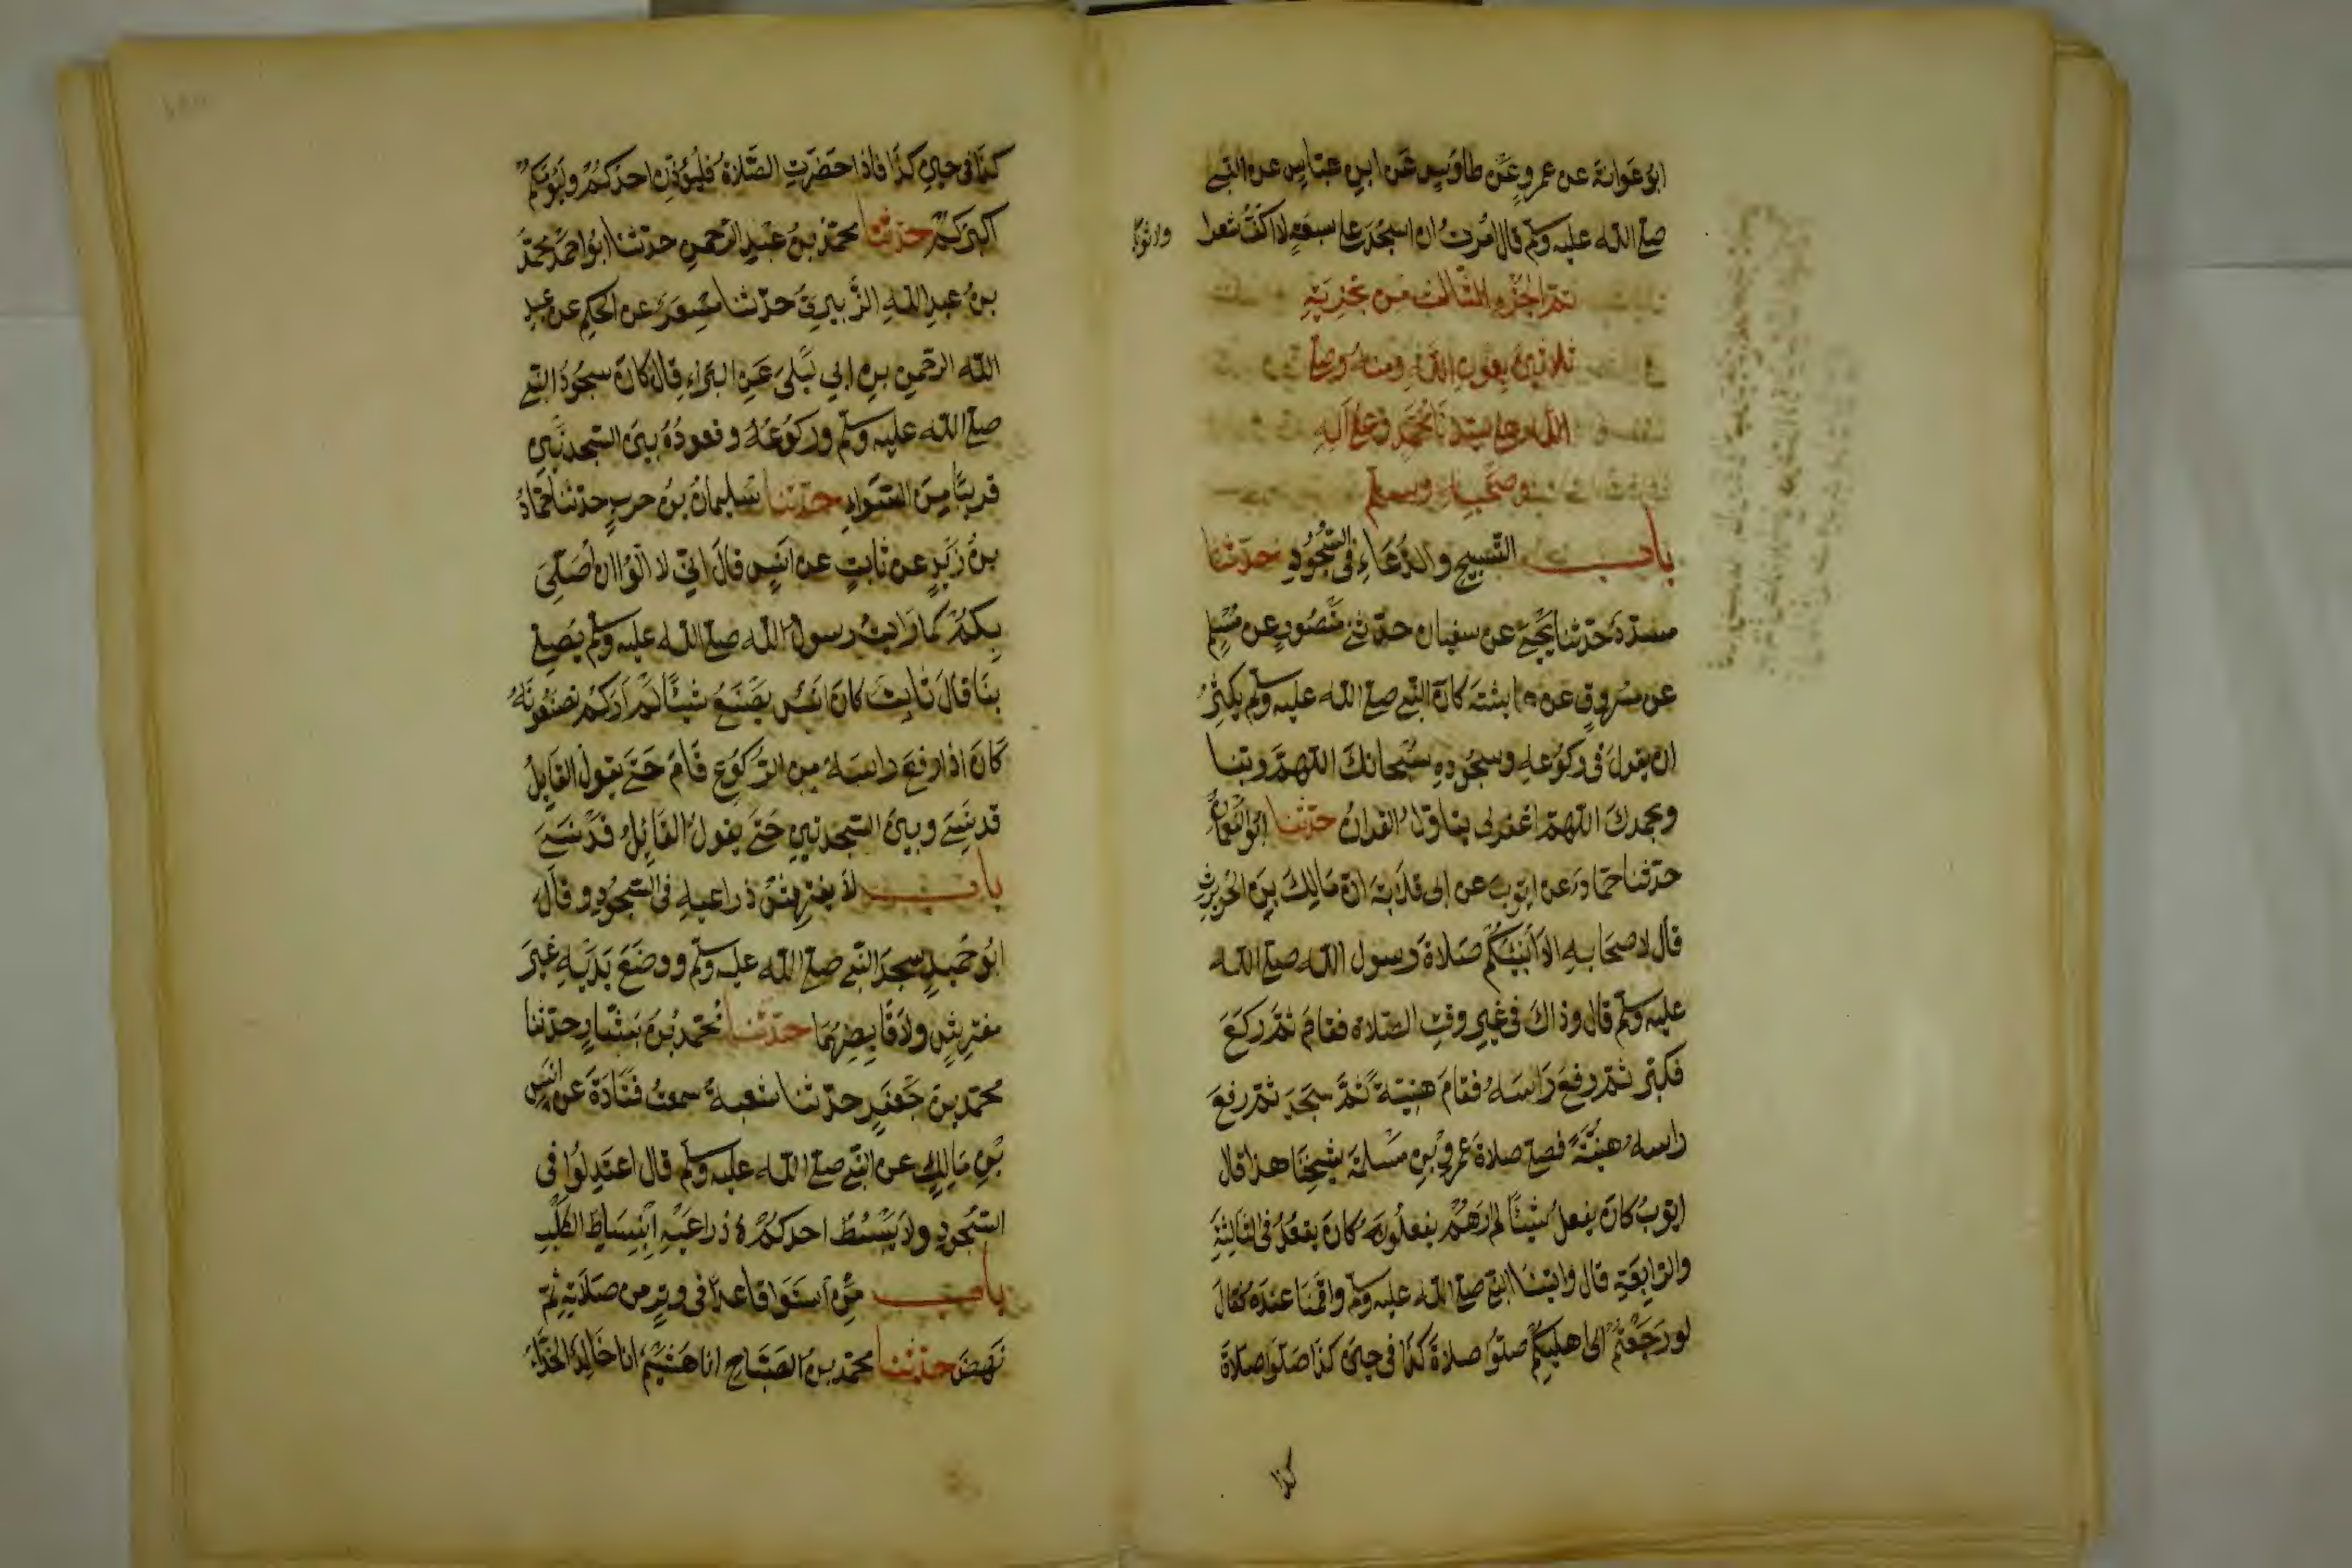 ابُو عَوانة عن عمرٍو عَن طاوُسٍ عَن ابنِ عبّاسٍ عن النبى
صلى الله عليه وسلم قال اُمرتُ ان اسجُدَ على سبعةٍ لا اكُفُّ شعرا
ولا ثوبًا
تمّ الجُزءِ الثّالث من تجزيَةِ
ثلاثينَ بعونِ الله ومنه وصلى
الله على سيّدنا مُحمّدٍ وَعلى آلهِ
وصَحبه وسلم
باب التّسبيح والدُّعَاءِ فى السُّجُودِ حدّثنا
مسدّدٌ حَدّثنا يَحيى عن سفيان حدّثنى مَنصُورٍ عن مُسْلِمٍ
عن مسْروقٍ عن عايشة كانَ النّبى صلى الله عليه وسلم يكثِرُ
ان يقولَ فى ركوُعه وسجُودهِ سُبحانكَ اللهمّ ربّنا
وبحمدكَ اللهمّ اغفرلى يتاوّلُ القرانَ حدّثنا ابُو النّعمانِ
حدّثنا حمّادٌ عن ايّوبَ عن ابى قلابَةَ انّ مَالِكَ بن الحُويرثِ
قال لاصحَابه الا اُنَبّئكُم صَلاةَ رسول الله صلى الله
عليه وسلم قال وذاكَ فى غيرِ وقتِ الصّلاة فقامَ ثمّ ركَعَ
فكبّر ثمّ رفعَ رَاسَهُ فقامَ هنيّةً ثمَّ سجَدَ ثمّ رفعَ
راسه هنيّةً فصلى صلاةَ عمرو بن سَلمةَ شيخِنَا هذا قال
ايّوبُ كانَ يفعلُ شيئًا لم ارَهُمْ يفعلُونهُ كانَ يقعُدُ فى الثالِثةِ
والرّابعَةِ قال فاتينَا النبىّ صلى الله عليه وسلم فاقمنَا عندَهُ فقالَ
لو رَجَعْتُمْ الى اهليكُم صلّوُا صلاةَ كذا فى حينِ كذا صَلّوا صلاةَ
كذا
كذَا فى حينِ كذَا فاذا حضَرَتِ الصّلاةُ فليُؤذِّن احدُكُمْ وليَؤمّكُمْ
اكبرُكمْ حدّثنا محمّدُ بنُ عَبْدِ الرّحمن حدّثنا ابُو احمدَ محمّدُ
بنُ عبدِ اللهِ الزُّبيرىّ حَدّثنا مِسْعَرٌ عن الحكمِ عن عبد
الله الرّحمن بن ابى ليلى عَنِ البَراءِ قالَ كانَ سجُودُ النّبى
صلى الله عليه وسلم وركُوعُهُ وقعودُهُ بينَ السّجدتينِ
قريبًا منَ السّواءِ حدّثنا سُليمانُ بنُ حربٍ حدّثنا حمّادُ
بنُ زيدٍ عن ثابتٍ عن انسٍ قالَ انّى لا آلُوا ان اُصَلّىَ
بِكُمْ كما رايتُ رسولَ الله صلى الله عليه وسلم يصلى
بنَا قالَ ثابتٌ كانَ انسٌ يصْنَعُ شيئًا لَمْ اَرَكُمْ تصْنَعُونَهُ
كَانَ اذا رفعَ راسَهُ من الرّكُوعِ قَامَ حَتّى يقولَ القايلُ
قد نسىَ وبينَ السّجدتينِ حَتّى يقولَ القَائِلُ قَدْ نسَىَ
باب لاَ يفترِشُ ذراعيه فى السّجُودِ وقالَ
ابُو حُميدٍ سجدَ النّبى صلى الله عليه وسلم ووضَعَ يَدَيْهِ غيرَ
مفترشٍ ولا قابضِهِمَا حدّثنا مُحمّدُ بنُ بشّارٍ حدّثنا
محمّد بنُ جَعْفرٍ حدّثنا شعبةُ سمعتُ قتَادَةَ عن انسِ
بْنِ مَالِكٍ عن النّبى صلى الله عليه وسلم قال اعتَدِلُوا فى
السُّجُودِ ولا يَبْسُط احدكُمْ ذراعَيْهِ اِنْبِسَاطَ الكَلْبِ
باب مَنِ اسْتَوَا قاعدًا فى وترٍ من صَلاَتِه ثمّ
نَهضَ حدّثنا محمّد بنُ الصَّبّاحِ انا هُشَيمٌ انا خَالِدٌ الحَذّاءُ